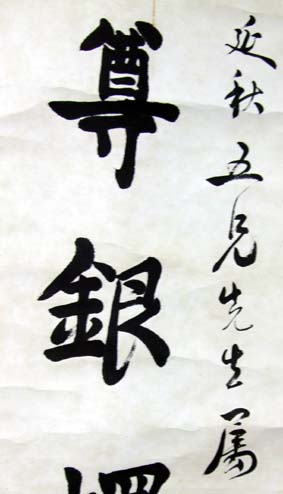 延秋五兄先生属
尊銀